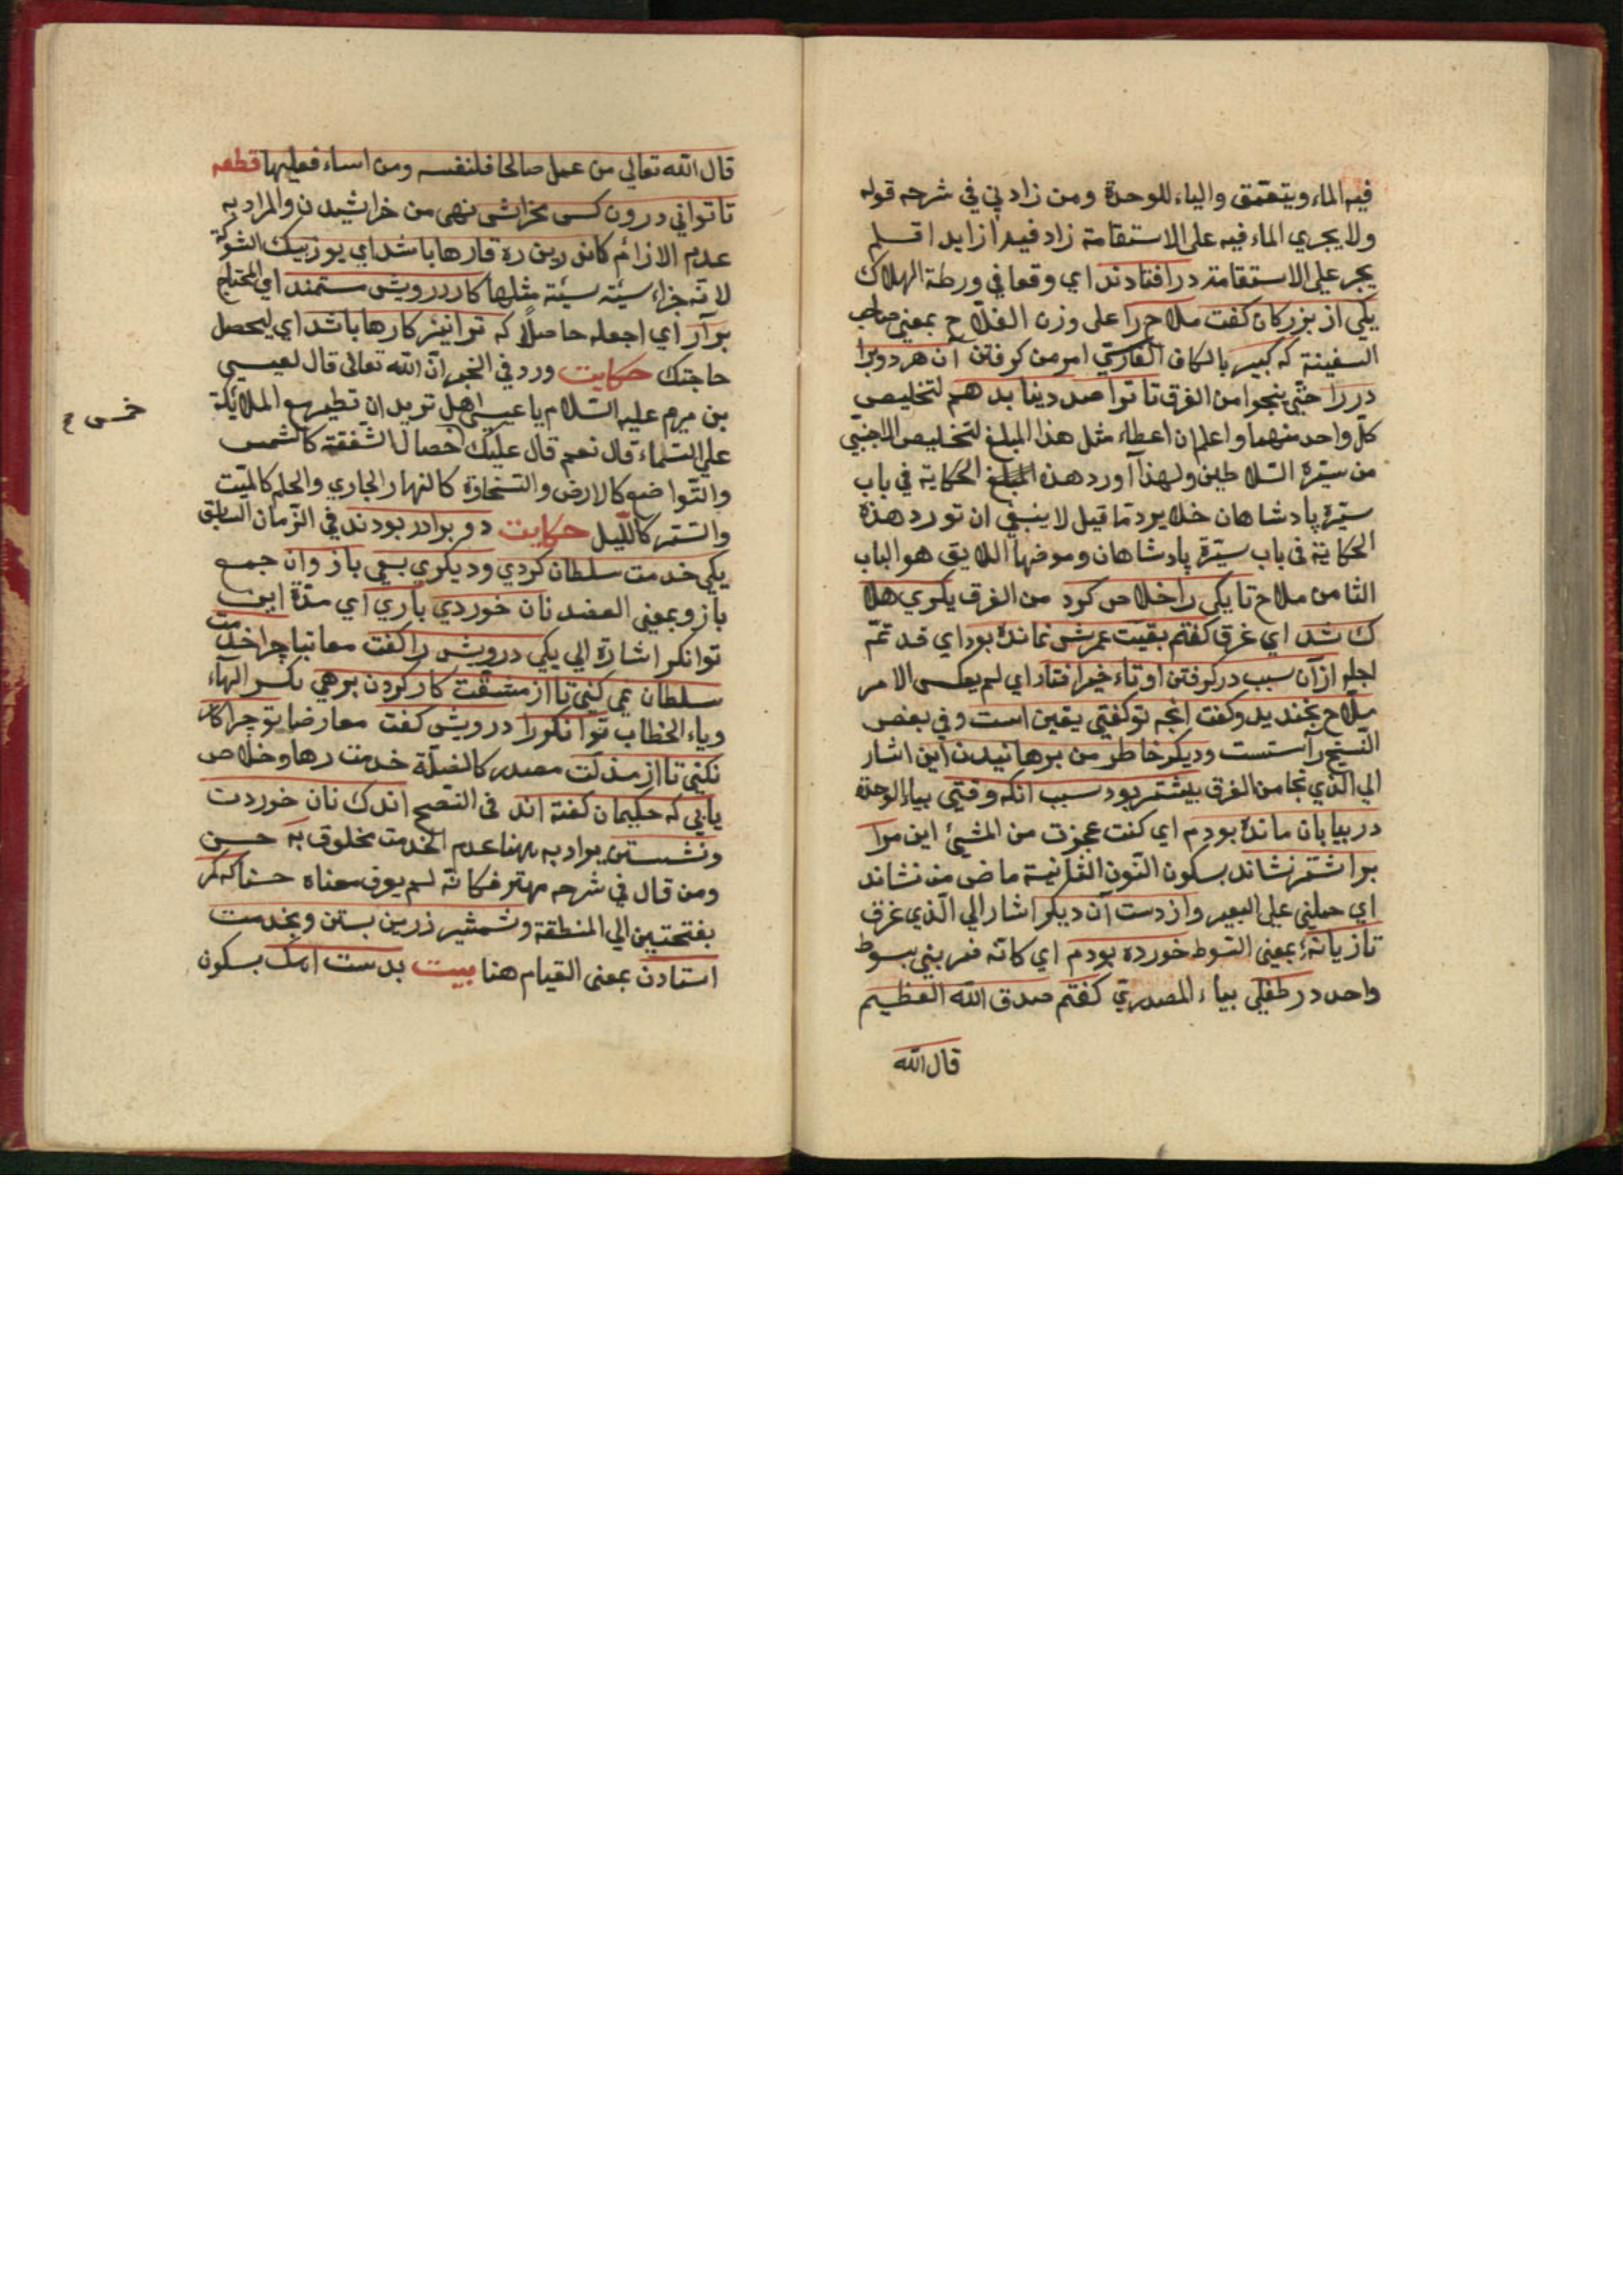 فيه الماء ويتعمّق والياء للوحدة ومن زاد في في شرحه قوله
ولا يجري الماء فيه على الاستقامة زاد فيدا زايدا قلم
يجر على الاستقامة درافتادند اي وقعا في ورطة الهلاك
يكي از بزركان كفت ملاح را على وزن الفلاح بمعنى صاحب
السفينة كه كبير بالكاف الفارسي امر من كرفتن آن هر دو برا
در را حتّي ينجوا من الغرق تا ترا صد دينا بدهم لتخليص
كلّ واحد منهما واعلم ان اعطاء مثل هذا المبلغ لتخليص الاجنبي
من سيرة السلاطين ولهذا آورد هذه الحكاية في باب
سيرة پادشاهان خلا يرد ما قيل لا ينبغي ان تورد هذه
الحكاية في باب سيرة پادشاهان وموضها اللايق هو الباب
الثامن ملاح تا يكي را خلاص كرد من الغرق يكري هلا
ك شد اي غرق كفتم بقيّت عمرش نمانده بود اي قد تمّ
اجله ازآن سبب در كرفتن او تاءخير افتاد اي لم يعكس الامر
ملاح بخنديد وكفت انجه تو كفتي يقين است وفي بعض
النسخ راستست وديكر خاطر من برهانيدن اين اشار
الي الذي نجا من الغرق بيشتر بود سبب انكه وقتي بياء الوحدة
در بيابان مانده بودم اي كنت عجزت من المشيئ اين مرا
بر اشتر نشاند بسكون النون الثانية ماض من نشاند
اي حملني على البعير واز دست آن ديكر اشار الي الذي غرق
تازيانهء بمعنى السوط خورده بودم اي كانّه ضربني بسوط
واحد در طفلي بياء المصدري كفتم صدق الله العظيم
قال الله
قال الله تعالي من عمل صالحا فلنفسه ومن اساء فعليها قطعه
تا تواني درون كس مخراش نهي من خراشيدن والمراد به
عدم الازام كاندرين ره قارها باشد اي يوزيك الشوكة
لانّه جزاء سيئة سيئة مثلها كار درويش مستمند اي المحتاج
برآر اي اجعله حاصلا كه ترا نيز كارها باشد اي ليحصل
حاجتك حكايت ورد في الخبر انّ الله تعالى قال لعيسي
بن مريم عليه السلام يا عيسي اهل تريد ان تطير مع الملائكة
خمس ح
علي السماء قال نعم قال عليك خصال الشفقة كالشمس
والتواضع كالارض والسخاوة كالنهار الجاري والحلم كالميّت
والستر كاللّيل حكايت دو برادر بودند في الزمان السابق
يكي خدمت سلطان كردي وديكري بسعي بازوان جمع
بازو بمعنى العضد نان خوردي باري اي مدّة اين
توانكر اشارة الي يكي درويش را كفت معاتبا چرا خدمت
سلطان نمي كني تا از مشقّت كار كردن برهي بكسر الهاء
وياء الخطاب توانكر را درويش كفت معارضا تو چرا كار
نكني تا از مذلّت مصدر كالضلّة خدمت رها وخلاص
يابي كه حكيمان كفته اند في النصح اندك نان خوردت
ونشستن يراد به ههنا عدم الخدمت بخلوق به حسن
ومن قال في شرحه مهتر فكانّه لم يعرف معناه حسنا كه كمر
بفتحتين الي المنطقة وشمشير زرين بستن وبخدمت
استادن بمعنى القيام هنا بيت بدست اهك بسكون